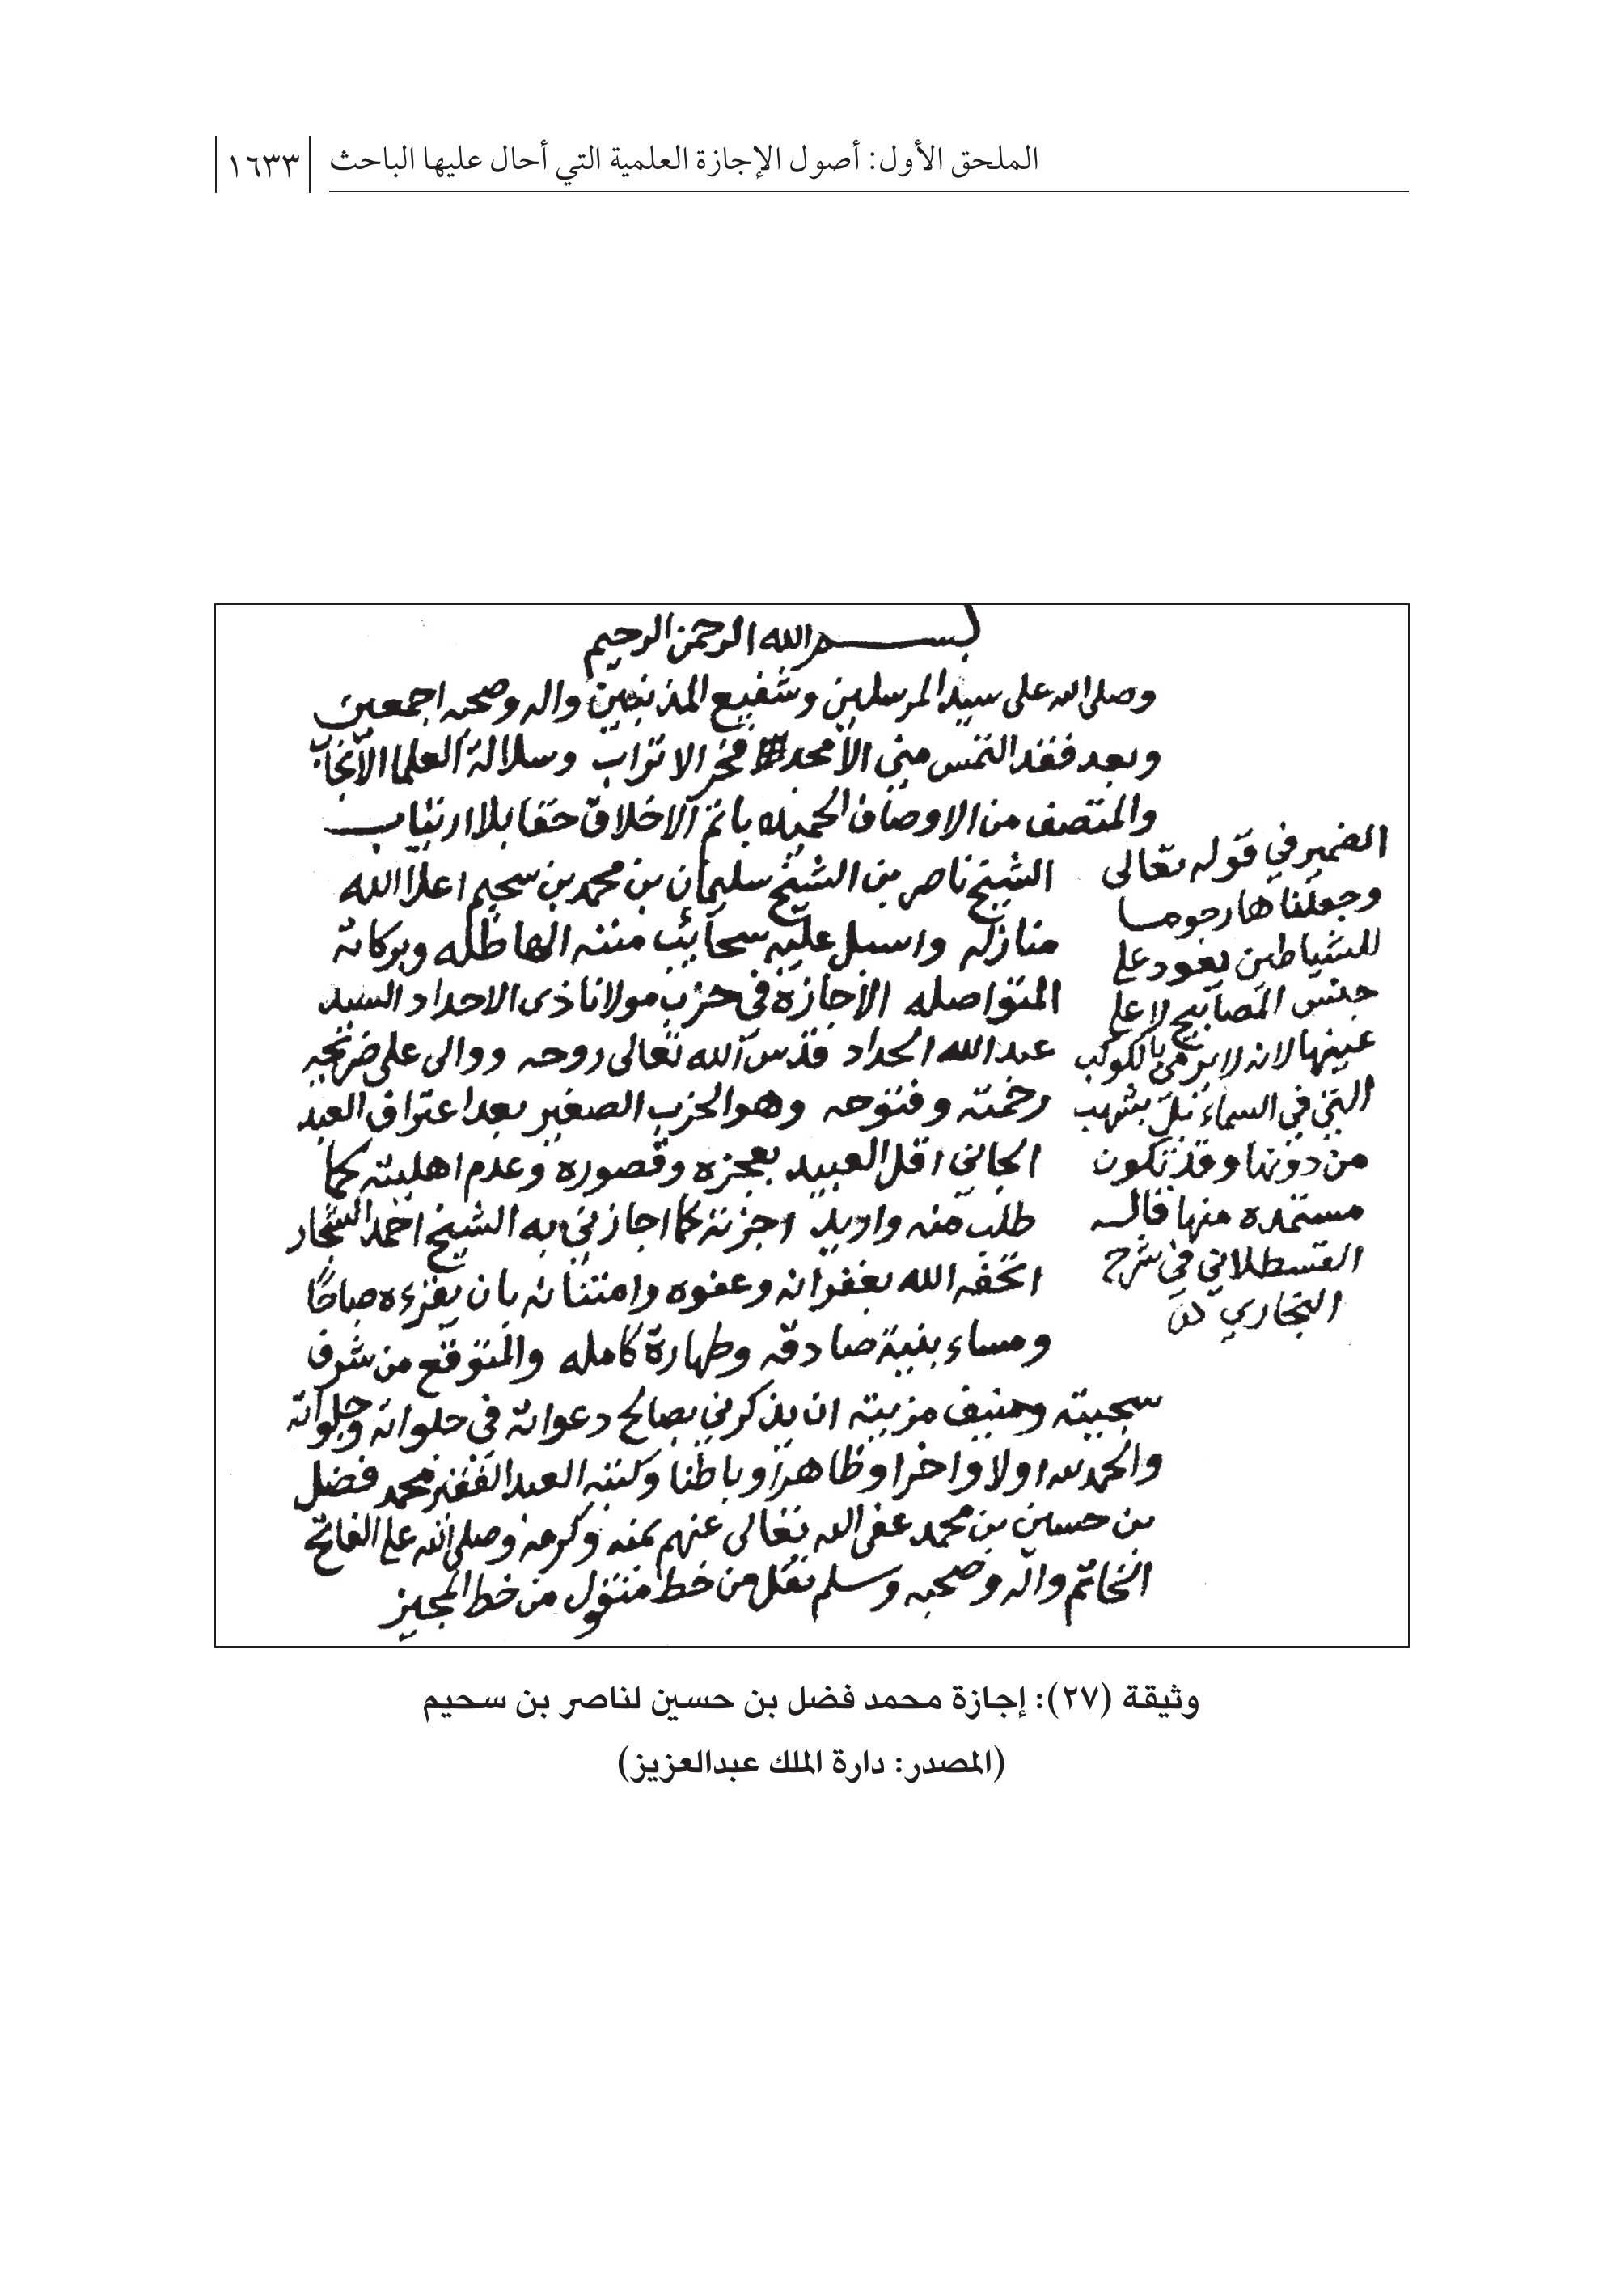 الملحق الأول: أصول الإجازة العلمية التي أحال عليها الباحث
١٦٣٣
بسم الله الرحمن الرحيم
وصلى الله على سيد المرسلين وشفيع المذنبين واله وصحبه اجمعين
وبعد فقد التمس مني الأمجد فخر الاتراب وسلالة العلما الأنجاب
والمتصف من الاوصاف الحميده باتم الاخلاق حقا بلا ارتياب
الشيخ ناصر بن الشيخ سليمان بن محمد بن سحيم اعلا الله
منازله واسبل عليه سحآئب مننه الهاطله وبركاته
المتواصله الأجازة في حزب مولانا ذى الامداد السيد
عبد الله الحداد قدس الله تعالى روحه ووالى على ضريحه
رحمته وفتوحه وهو الحزب الصغير بعد اعتراف العبد
الجاني اقل العبيد بعجزه وقصوره وعدم اهليته كما
طلب منه واريد اجزته كما اجازني به الشيخ احمد
اتحفه الله بغفرانه وعفوه وامتنانه بان يقرءه صباحًا
ومساء بنية صادقه وطهارة كامله والمتوقع من شرف
سجيته ومنيف مزيته ان يذكرني بصالح دعواته في خلواته وجلواته
والحمد لله اولا واخرا وظاهرًا وباطنا وكتبه العبد الفقير محمد فضل
بن حسين بن محمد عفى الله تعالى عنهم بمنه وكرمه وصلى الله على الفاتح
الخاتم واله وصحبه وسلم نقل من خط منقول من خط المجيز
الضمير في قوله تعالى
وجعلناها رجوما
للشياطين يعود على
جنس المصابيح لا على
عينها لانه لا يرمى بالكواكب
التي في السماء بل بشهب
من دونها وقد تكون
مستمده منها قاله
القسطلاني في شرح
البخاري
وثيقة (٢٧): إجازة محمد فضل بن حسين لناصر بن سحيم
(المصدر: دارة الملك عبدالعزيز)